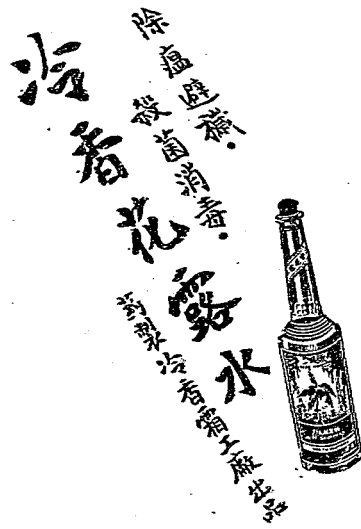 除瘟避穢．
殺菌消毒．
冷香花露水
製冷香霜工廠出品